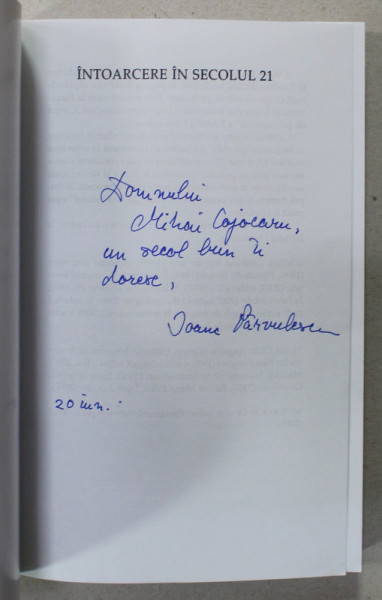 ÎNTOARCERE ÎN SECOLUL 21
Domnului
Mihai Cojocaru,
un secol bun îi
doresc,
Ioana Pârvulescu
20